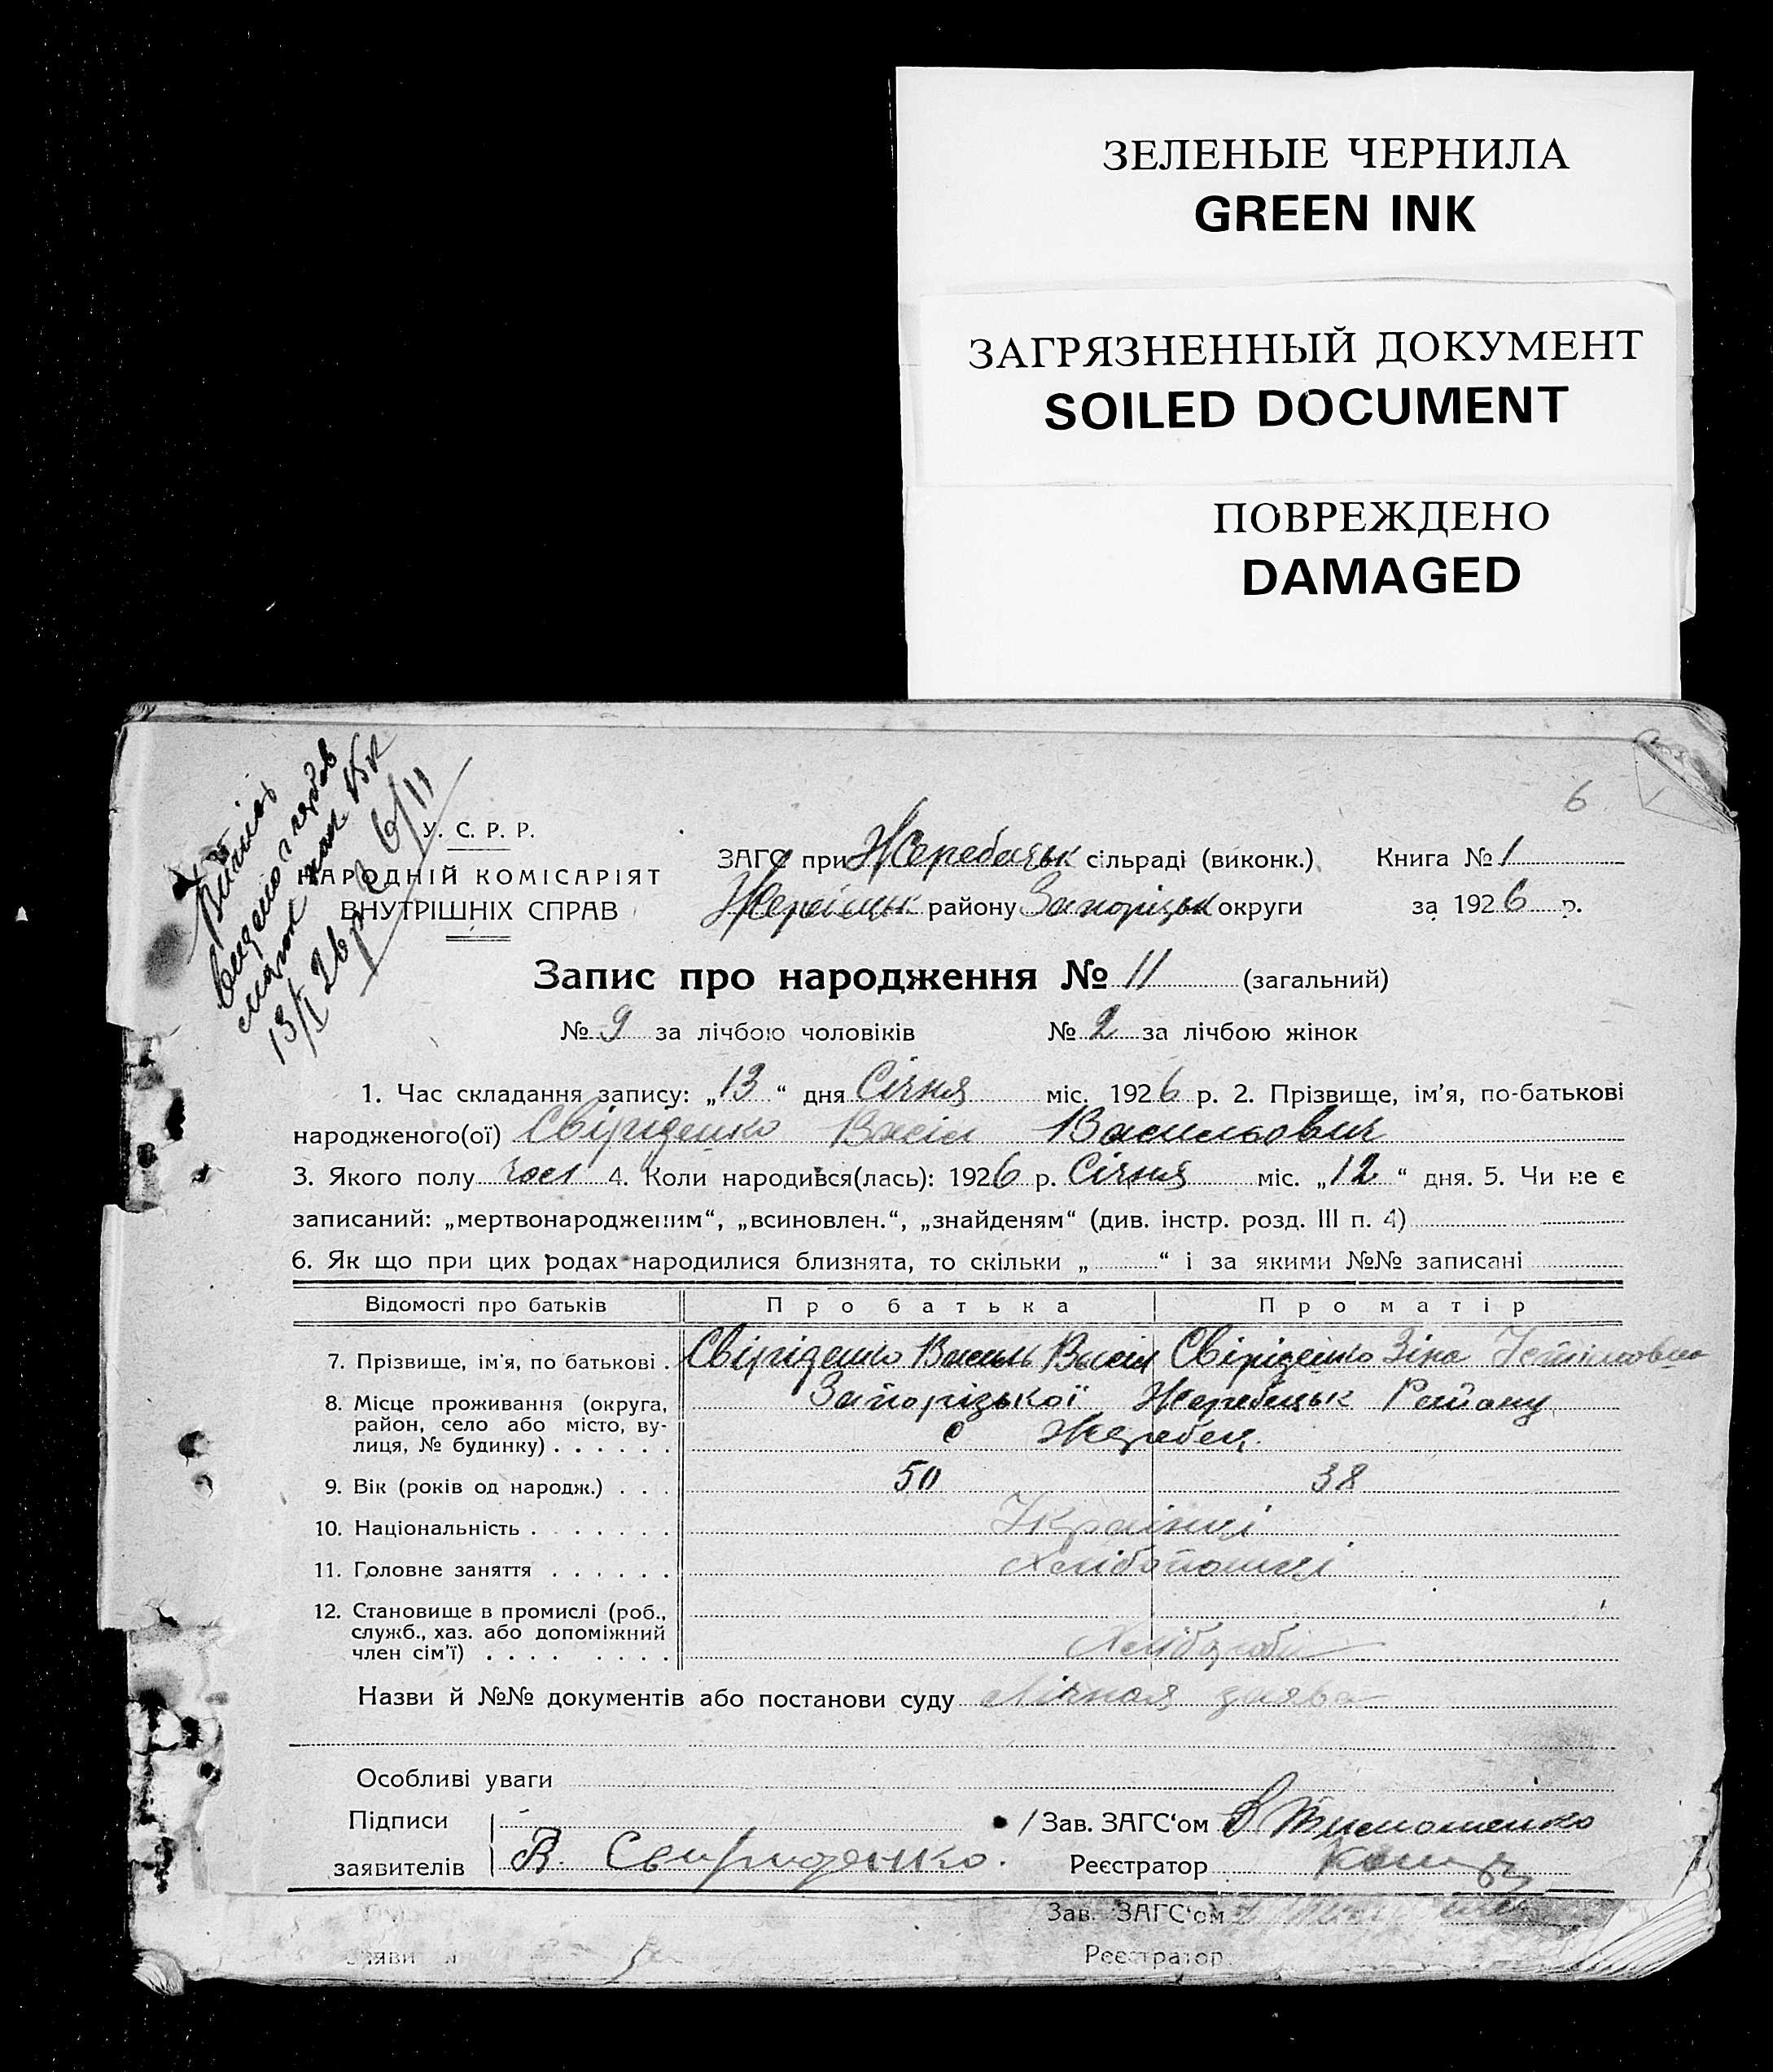 ЗЕЛЕНЫЕ ЧЕРНИЛА
GREEN INK
ЗАГРЯЗНЕННЫЙ ДОКУМЕНТ
SOILED DOCUMENT
ПОВРЕЖДЕНО
DAMAGED
6
13/I 26 р. 6/11
У. С. Р. Р.
НАРОДНІЙ КОМІСАРІЯТ
ВНУТРІШНІХ СПРАВ
ЗАГС при Жеребецьк сільраді (виконк.) Книга № 1
району Запоріцьк округи за 1926 р.
Запис про народження № 11 (загальний)
№ 9 за лічбою чоловіків № 2 за лічбою жінок
1. Час складання запису: „13“ дня Січня міс. 1926 р. 2. Прізвище, ім'я, по-батькові
народженого(ої) Свіріденко Васіл Васильович
3. Якого полу чол 4. Коли народився(лась): 1926 р. Січня міс. „12“ дня. 5. Чи не є
записаний: „мертвонародженим“, „всиновлен.“, „знайденям“ (див. інстр. розд. III п. 4)
6. Як що при цих родах народилися близнята, то скільки „ “ і за якими №№ записані
Відомості про батьків Про батька Про матір
7. Прізвище, ім'я, по батькові . Свіріденко Василь Васіл Свіріденко Зіна
8. Місце проживання (округа, Запорізької Жеребецьк Району
район, село або місто, ву-
лиця, № будинку) . . . . . . с Жеребец.
9. Вік (років од народж.) . . . 50 38
10. Національність . . . . . . . Українці
11. Головне заняття . . . . . . Хлібопашці
12. Становище в промислі (роб.,
служб., хаз. або допоміжний
член сім'ї) . . . . . . . . Хлібороби
Назви й №№ документів або постанови суду Лічная заява
Особливі уваги
Підписи / Зав. ЗАГС'ом Тимошенко
заявителів В. Свириденко. Реєстратор
Зав. ЗАГС'ом
Реєстратор